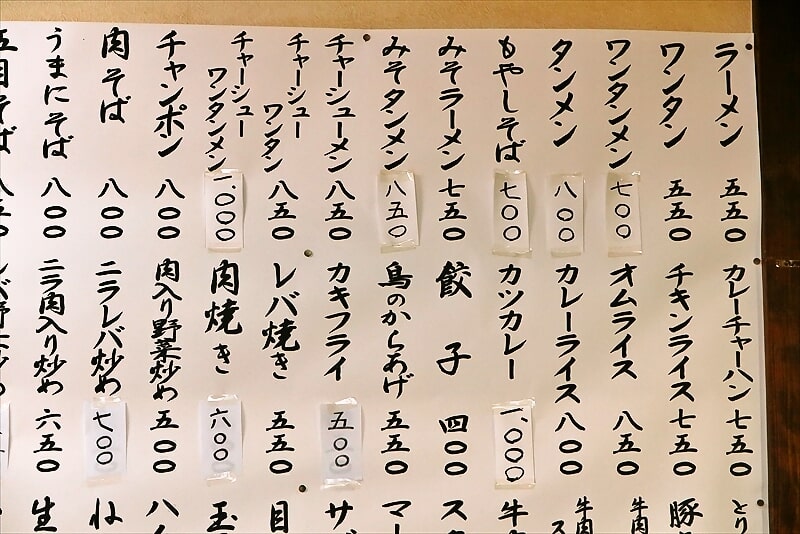 ラーメン 五五〇
ワンタン 五五〇
ワンタンメン 七〇〇
タンメン 八〇〇
もやしそば 七〇〇
みそラーメン 七五〇
みそタンメン 八五〇
チャーシューメン 八五〇
チャーシューワンタン 八五〇
チャーシューワンタンメン 一、〇〇〇
チャンポン 八〇〇
肉そば 八〇〇
うまにそば 八〇〇
五目そば 八五〇
カレーチャーハン 七五〇
チキンライス 七五〇
オムライス 八五〇
カレーライス 八〇〇
カツカレー 一、〇〇〇
餃子 四〇〇
鳥のからあげ 五五〇
カキフライ 五〇〇
レバ焼き 五五〇
肉焼き 六〇〇
肉入り野菜炒め 五〇〇
ニラレバ炒め 七〇〇
ニラ肉入り炒め 六五〇
とり
豚
牛肉
牛肉
牛
ス
マー
サ
目
玉
ハ
ね
生